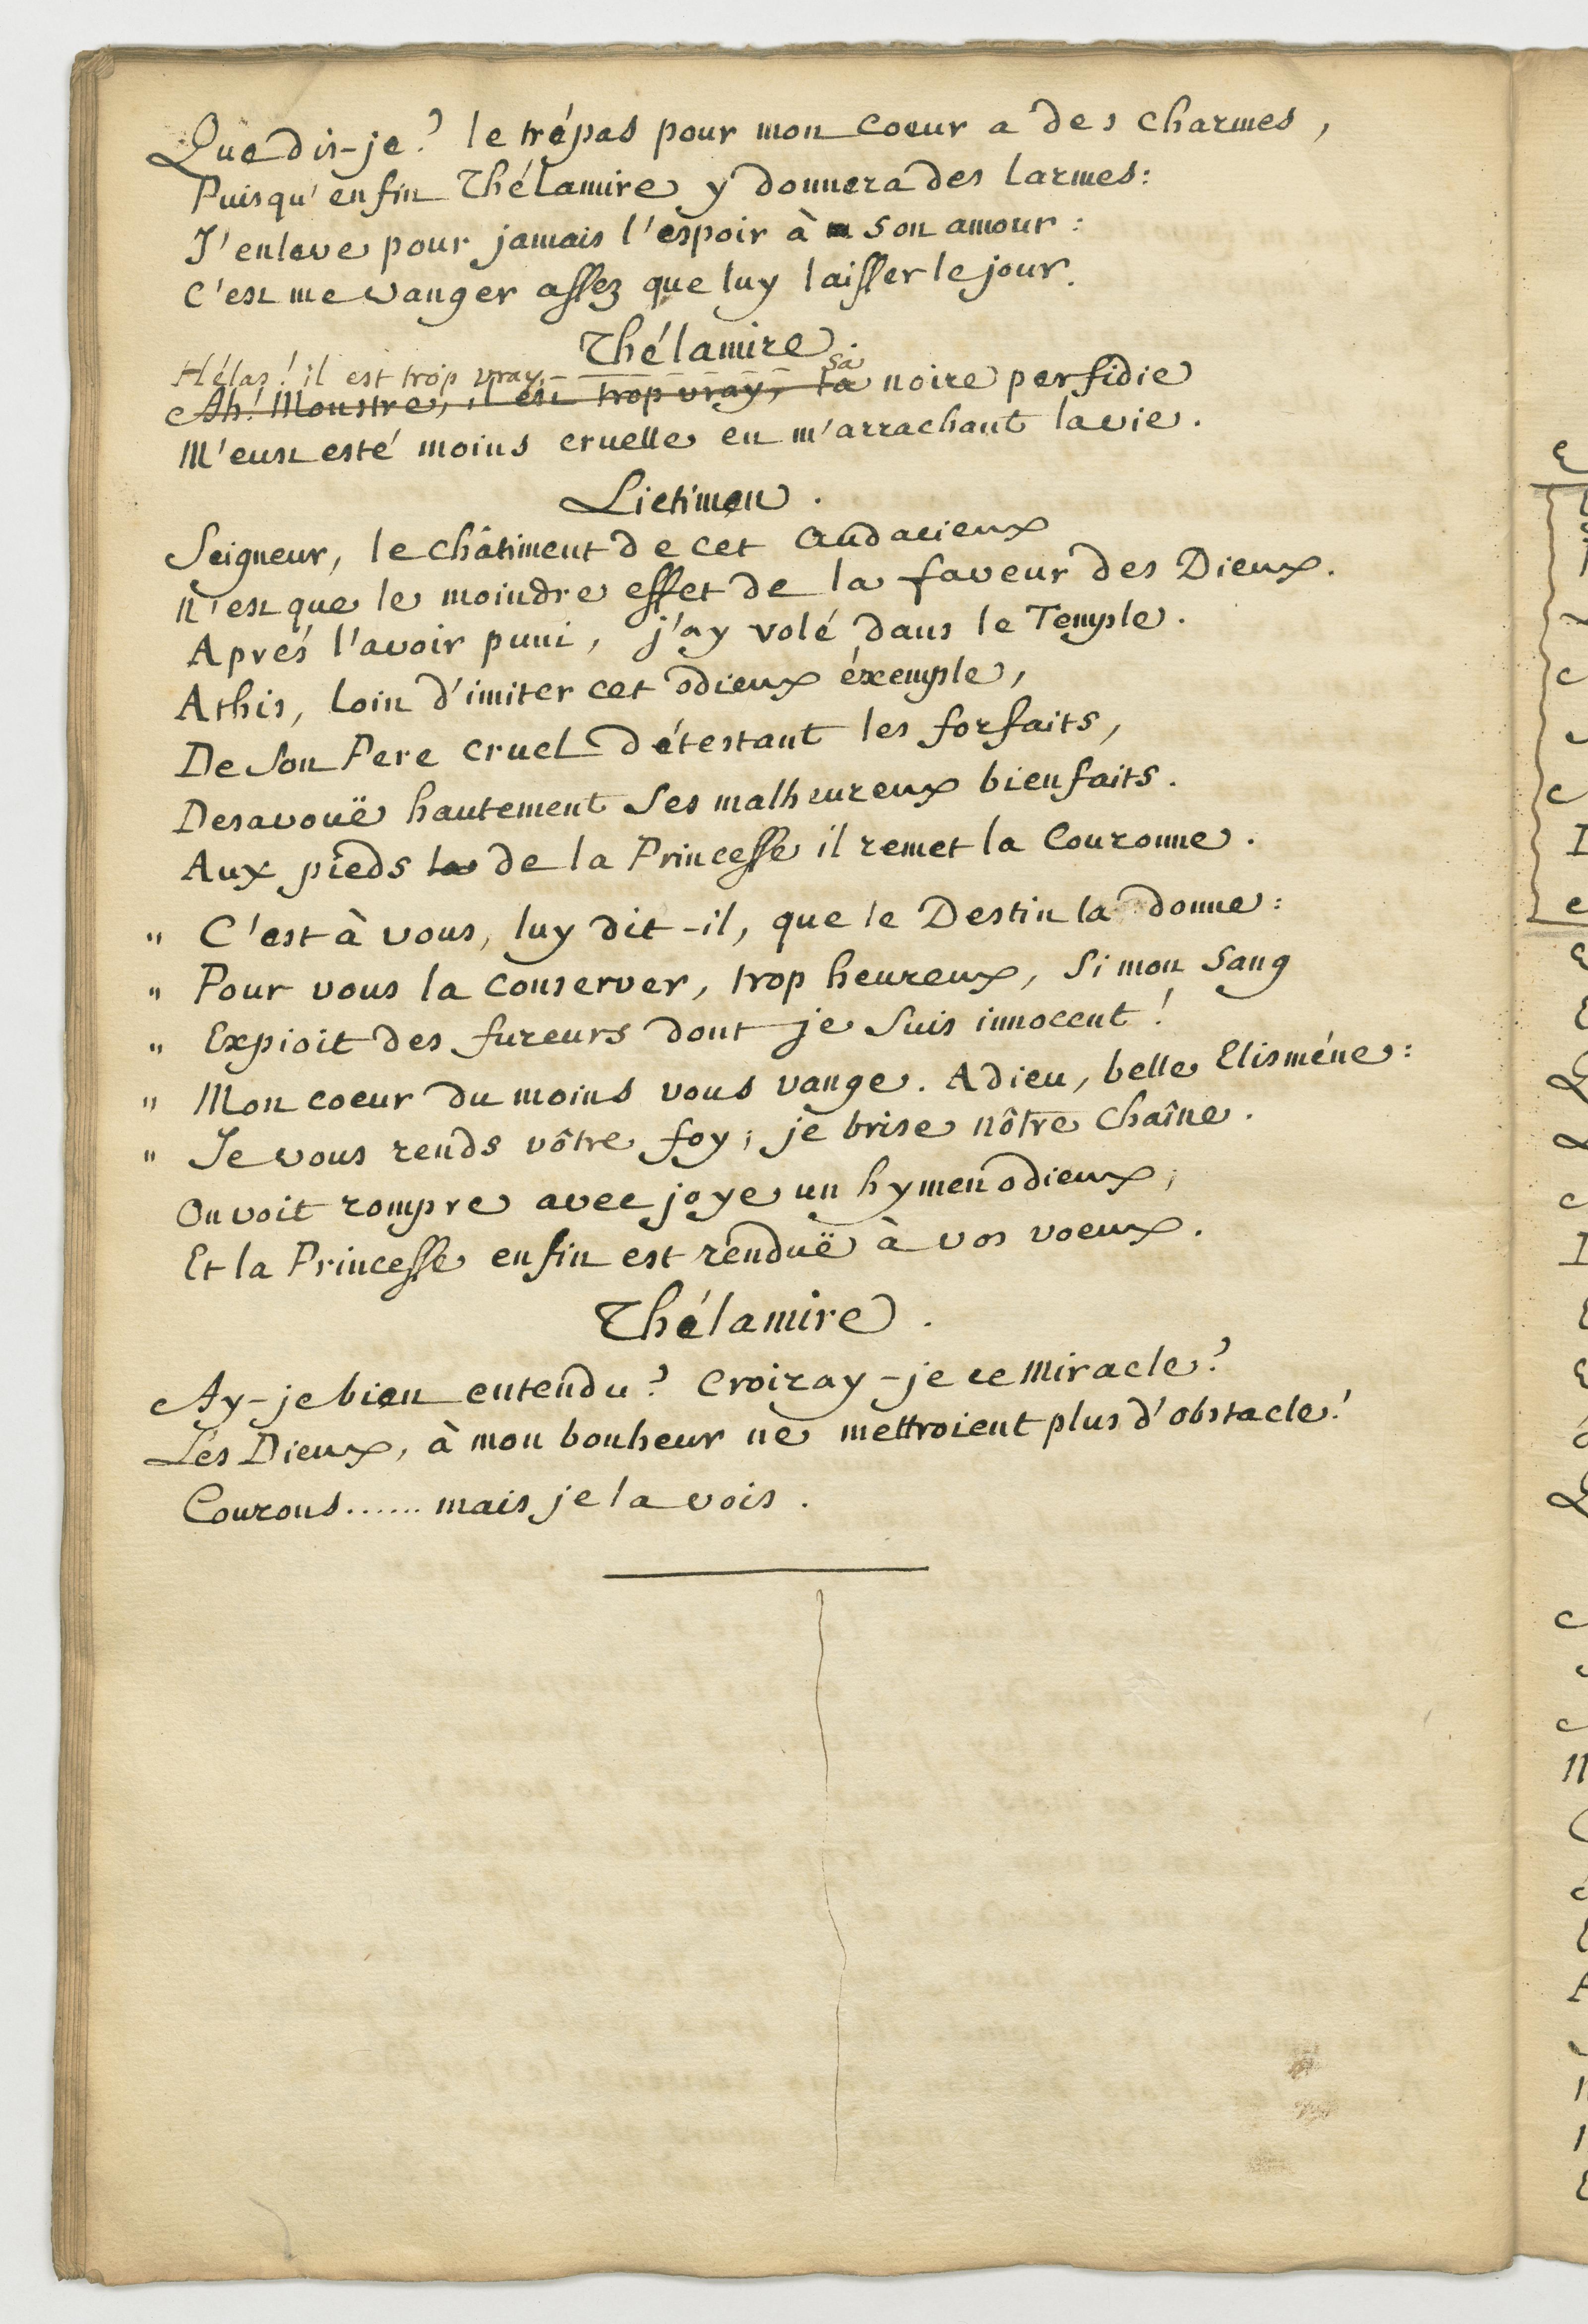 Que dis-je? le trépas pour mon coeur a des charmes,
Puisqu'enfin Thélamire y donnera des larmes:
J'enleve pour jamais l'espoir à son amour:
C'est me vanger assez que luy laisser le jour.
Thélamire.
Hélas! il est trop vray, sa
Ah! Monstre, il est trop vray, ta noire perfidie
M'eust esté moins cruelle en m'arrachant la vie.
Lictimen.
Seigneur, le châtiment de cet audacieux
N'est que le moindre effet de la faveur des Dieux.
Aprés l'avoir puni, j'ay volé dans le Temple.
Athis, loin d'imiter cet odieux éxemple,
De son Pere cruel détestant les forfaits,
Desavouë hautement ses malheureux bienfaits.
Aux pieds la de la Princesse il remet la Couronne.
" C'est à vous, luy dit-il, que le Destin la donne:
" Pour vous la conserver, trop heureux, si mon sang
" Expioit des fureurs dont je suis innocent!
" Mon coeur du moins vous vange. Adieu, belle Elisméne:
" Je vous rends vôtre foy; je brise nôtre chaîne.
On voit rompre avec joye un hymen odieux;
Et la Princesse enfin est renduë à vos voeux.
Thélamire.
Ay-je bien entendu? Croiray-je ce miracle?
Les Dieux, à mon bonheur ne mettroient plus d'obstacle!
Courons...... mais je la vois.